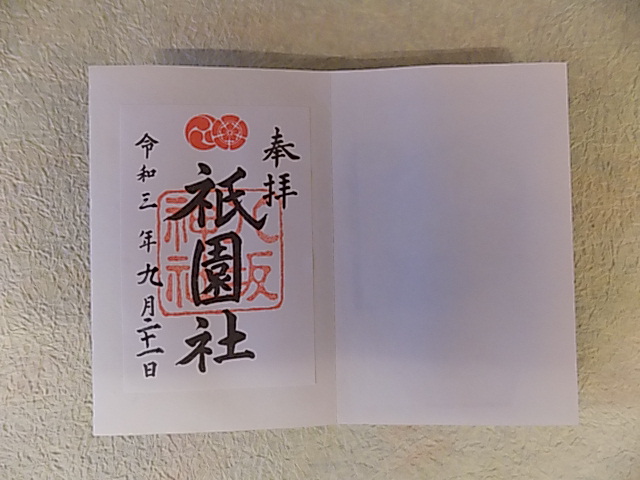 奉拝
祇園社
八坂神社
令和三年九月二十一日